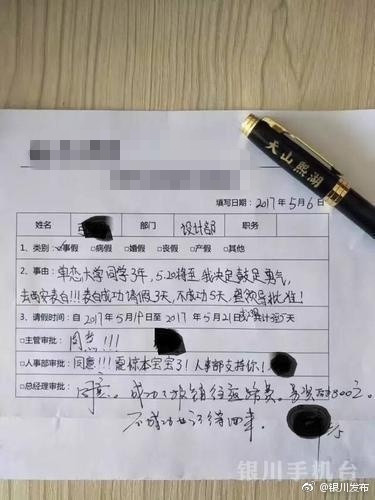 天山熙湖
填写日期：2017年5月6日
姓名 部门 设计部 职务
1、类别：☑事假 □病假 □婚假 □丧假 □产假 □其他
2、事由：单恋大学同学3年，5.20将至我决定鼓足勇气，
去西安表白!!!表白成功请假3天，不成功5天，望领导批准！
3、请假时间：自2017年5月19日至2017年5月21日 共计 5天
□主管审批：同意!!!
□人事部审批：同意!!!震惊本宝宝了！人事部支持你！
□总经理审批：同意。成功了报销往返路费，
不成功也记得回来。
银川手机台
@银川发布